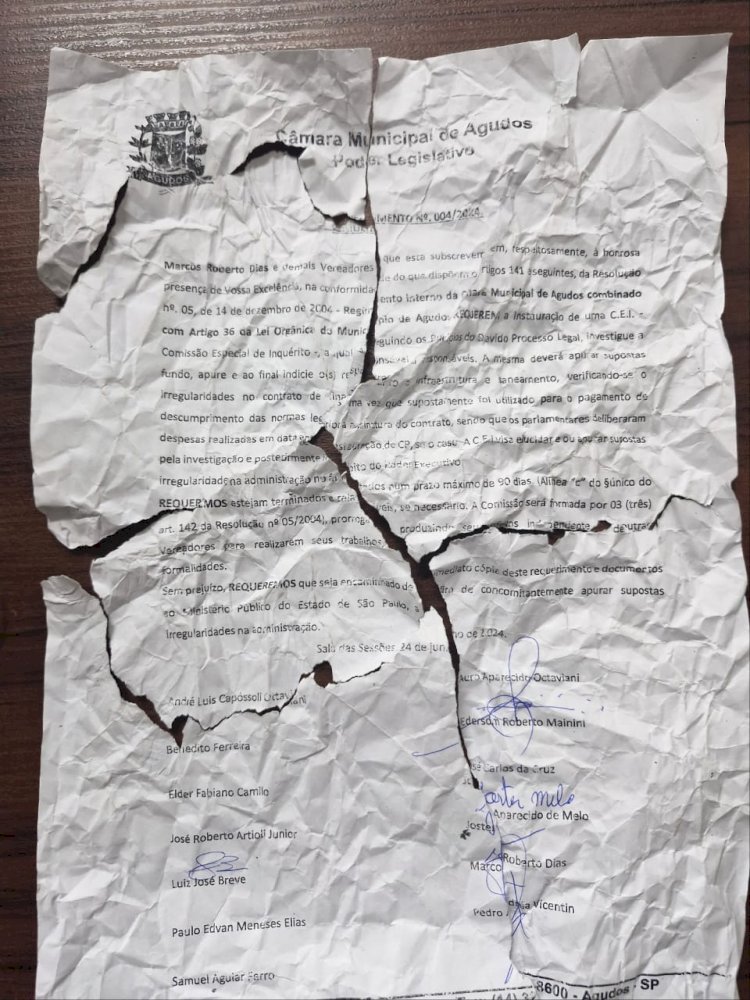 AGUDOS
Câmara Municipal de Agudos
Poder Legislativo
MENTO Nº. 004/2024
Marcos Roberto Dias e demais Vereadores que esta subscrevem, respeitosamente, à honrosa
presença de Vossa Excelência, na conformida de do que dispõem o rtigos 141 e seguintes, da Resolução
nº. 05, de 14 de dezembro de 2004 - Regim ento Interno da Municipal de Agudos combinado
com Artigo 36 da Lei Orgânica do Munic pio de Agudos REQUEREM a instauração de uma C.E.I. -
Comissão Especial de Inquérito -, a qual guindo os do Davido Processo Legal, investigue a
fundo, apure e ao final indicie o(s) res ponsáveis. A mesma deverá apurar supostas
irregularidades no contrato de infraestrutura e saneamento, verificando-se o
descumprimento das normas le ma vez que supostamente foi utilizado para o pagamento de
despesas realizadas em data assinatura do contrato, sendo que os parlamentares deliberaram
pela investigação e posteriormente instauração de CP, se o caso. A C.E.I visa elucidar e ou apurar supostas
irregularidade na administração no bito do Poder Executivo.
REQUERMOS estejam terminados e rela tados num prazo máximo de 90 dias (Alínea "c" do §único do
art. 142 da Resolução nº 05/2004), prorrog veis, se necessário. A Comissão será formada por 03 (três)
Vereadores para realizarem seus trabalhos produzindo independente de outras
formalidades.
Sem prejuízo, REQUEREMOS que seja encaminhado de imediato cópia deste requerimento e documentos
ao Ministério Público do Estado de São Paulo, a de concomitantemente apurar supostas
irregularidades na administração.
Sala das Sessões 24 de jun ho de 2024.
André Luis Capossoli Octaviani
Aparecido Octaviani
Benedito Ferreira
Ederson Roberto Mainini
Elder Fabiano Camilo
sé Carlos da Cruz
José Roberto Artioli Junior
Melo
Aparecido de Melo
Luiz José Breve
Marco Roberto Dias
Paulo Edvan Meneses Elias
Pedro Vicentin
Samuel Aguiar Ferro
8600 - Agudos - SP